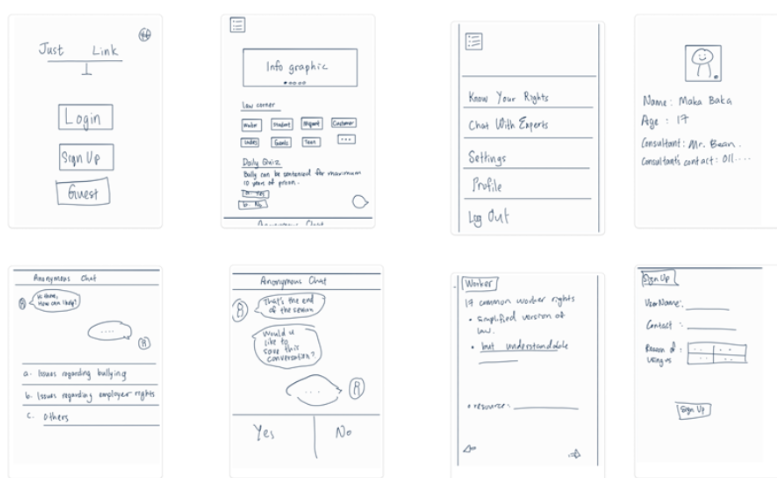 Just Link
Login
Sign Up
Guest
Info graphic
Law corner
Student
Migrant
Customer
Ladies
Teen
...
Daily Quiz
Bully can be sentenced for maximum
10 years of prison.
No
Anonymous Chat
Know Your Rights
Chat With Experts
Settings
Profile
Log Out
Name: Maka Baka
Age : 17
Consultant: Mr. Bean.
Consultant's contact: 011....
Anonymous Chat
How can I help?
....
a. Issues regarding bullying
b. Issues regarding employer rights
c. Others
Anonymous Chat
That's the end
of the session
Would u
like to
save this
conversation?
...
Yes No
Worker
common worker rights
• Simplified version of
law.
• but understandable
• resource:
Sign Up
UserName:
Contact :
Reason of :
using us
Sign Up